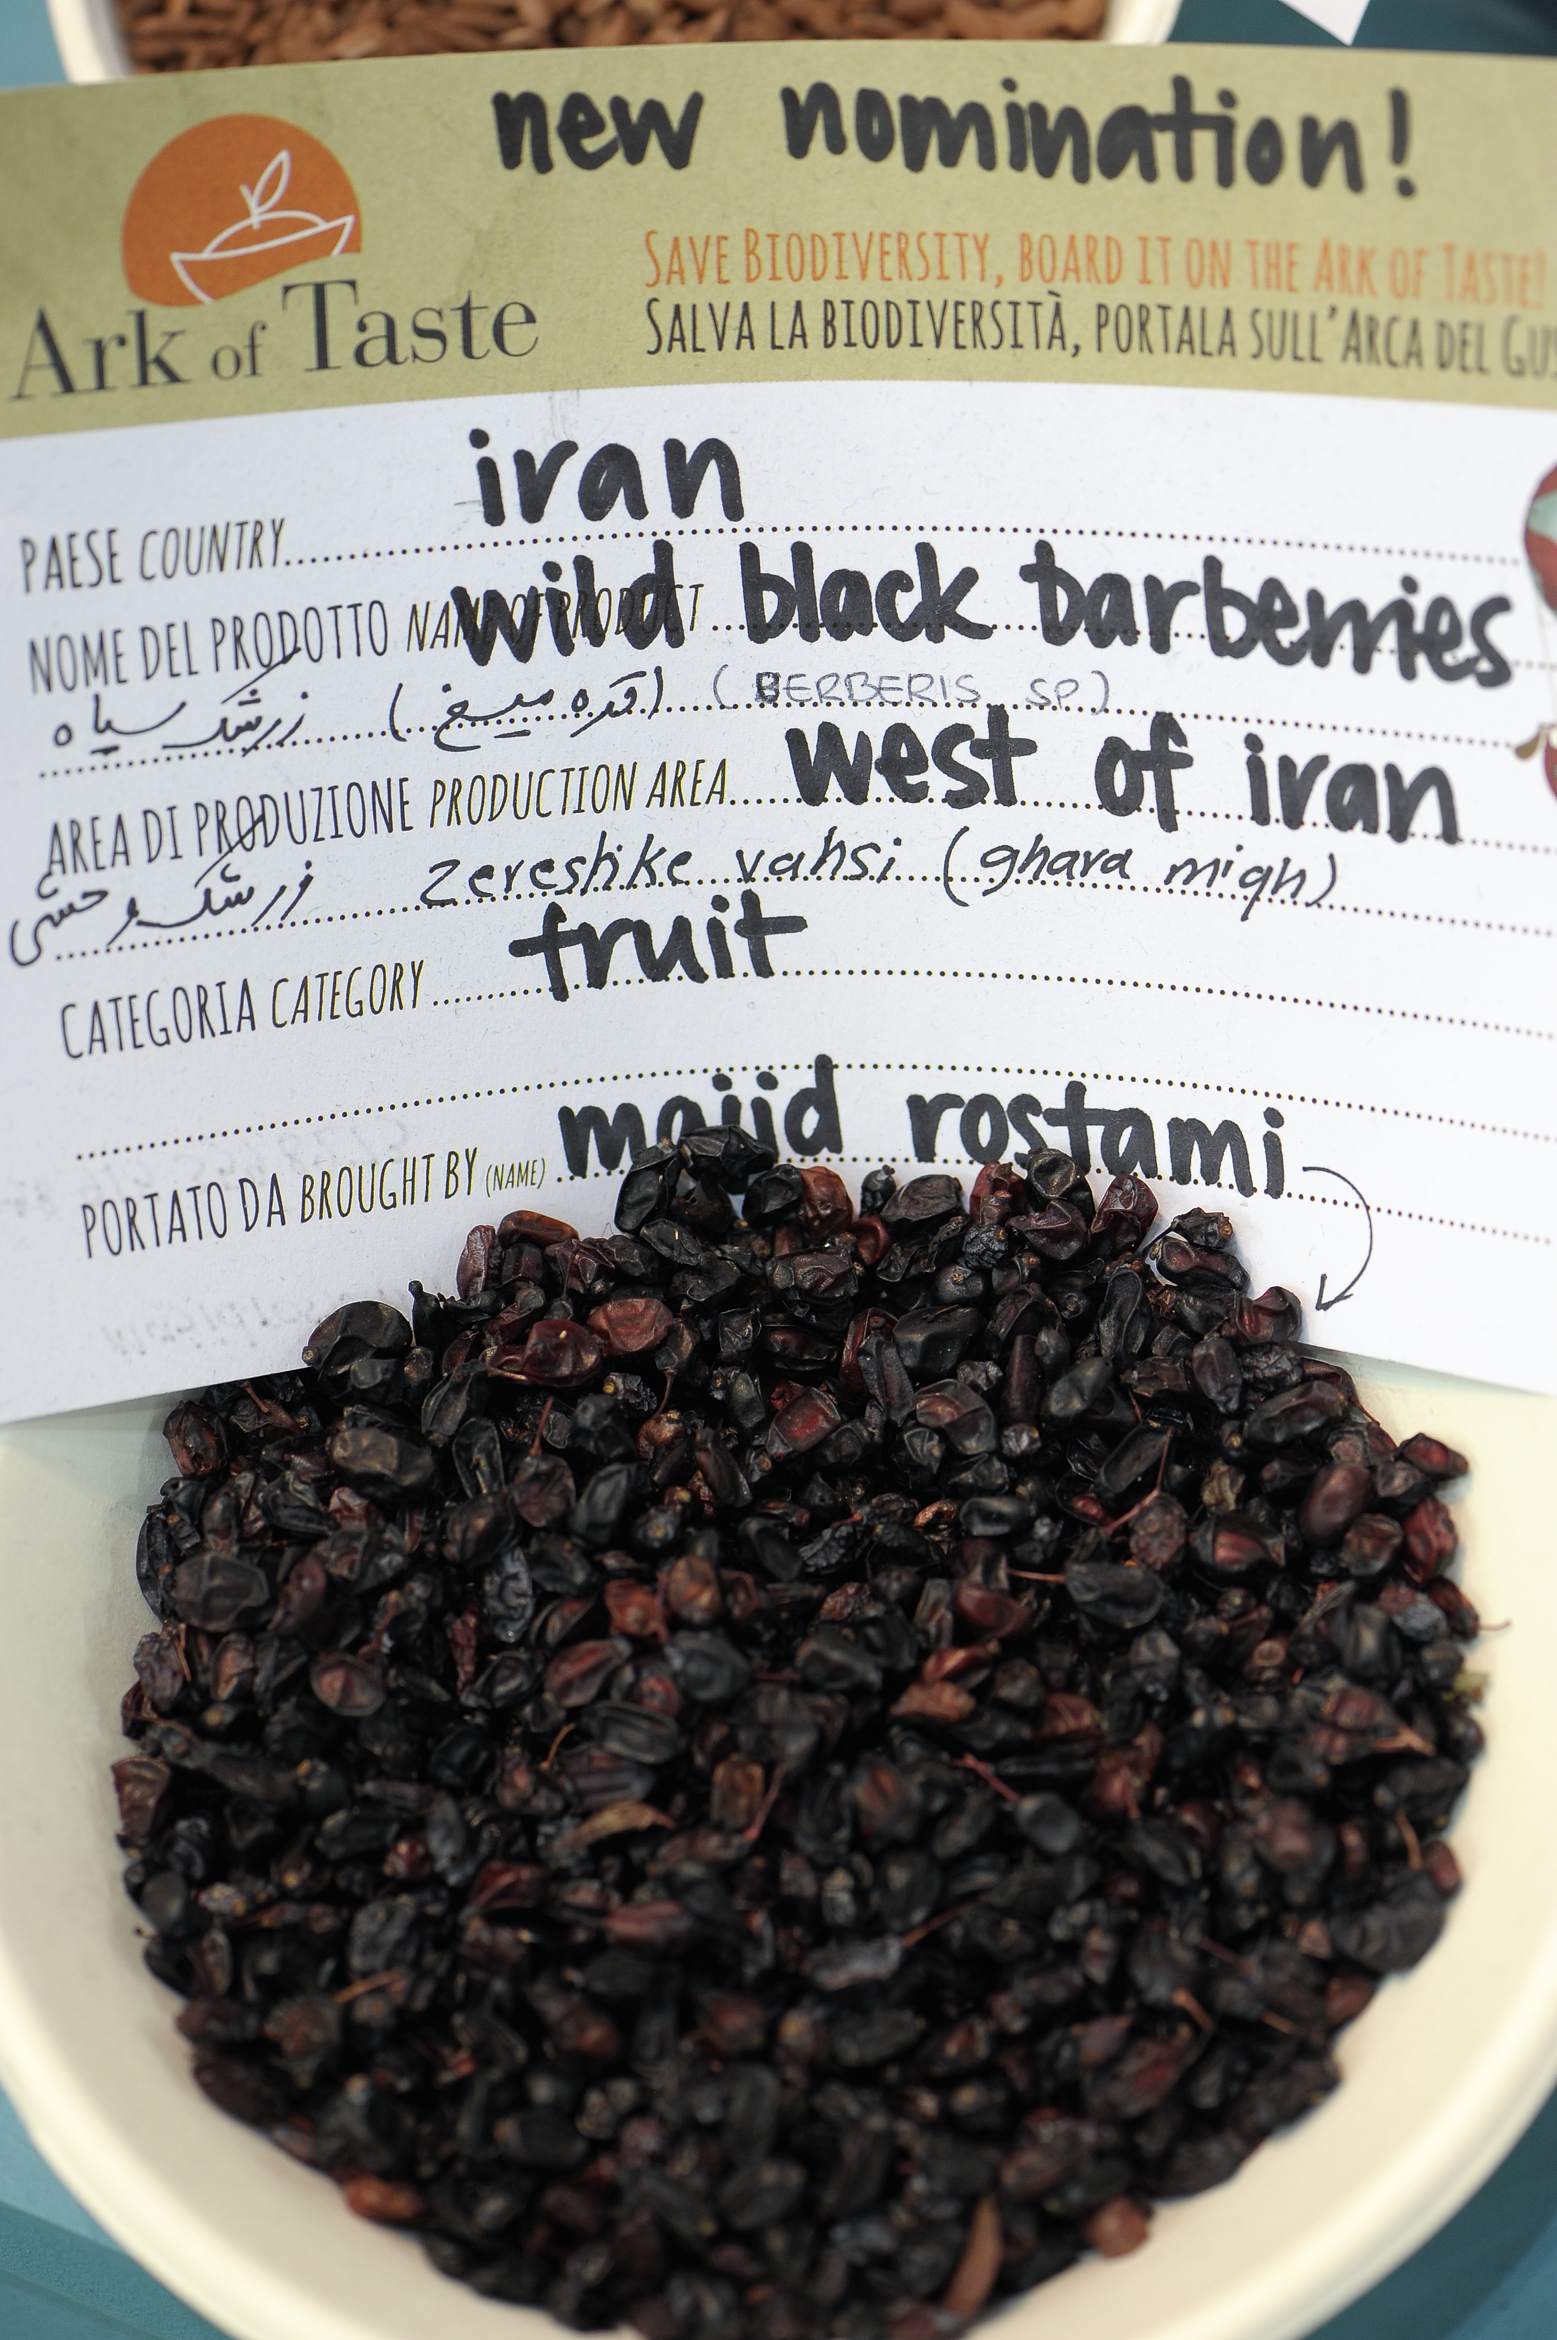 new nomination!
Ark of Taste
SAVE BIODIVERSITY, BOARD IT ON THE ARK OF TASTE!
SALVA LA BIODIVERSITÀ, PORTALA SULL'ARCA DEL GUS
PAESE COUNTRY iran
NOME DEL PRODOTTO NAME OF PRODUCT wild black barberries
زرشک سیاه (قره میغ) (BERBERIS SP)
AREA DI PRODUZIONE PRODUCTION AREA west of iran
زرشک وحشی zereshke vahsi (ghara migh)
CATEGORIA CATEGORY fruit
PORTATO DA BROUGHT BY (NAME) majid rostami